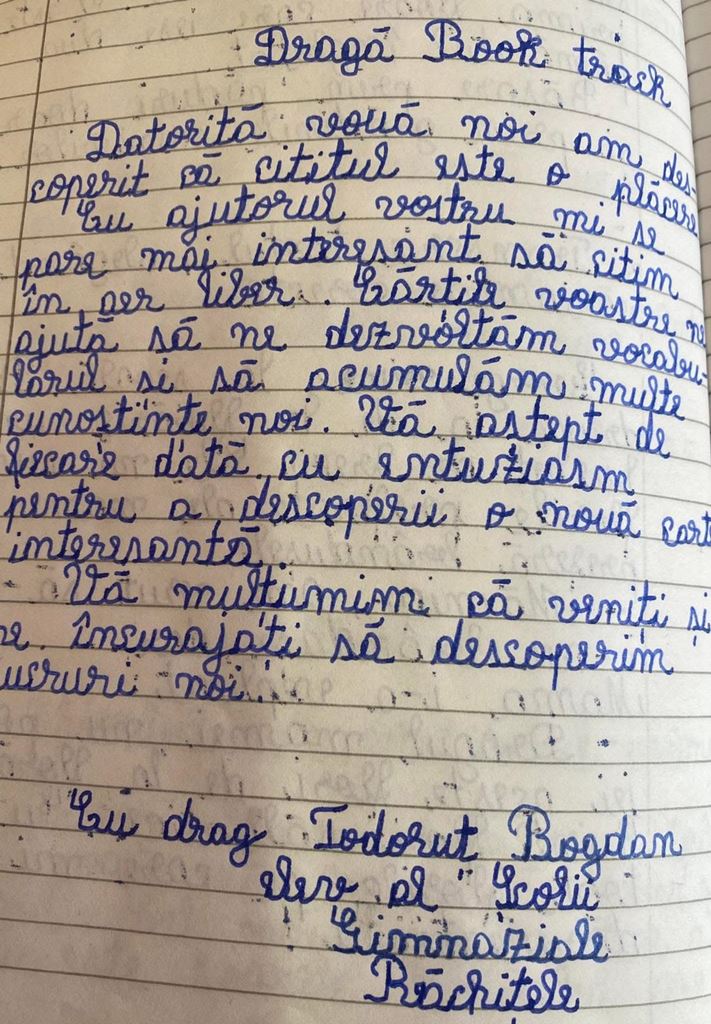 Dragă Book track
Datorită vouă noi am des-
coperit că cititul este o plăcere
Cu ajutorul vostru mi se
pare mai interesant să citim
în aer liber. Cărtile voastre ne
ajută să ne dezvoltăm vocabu-
larul si să acumulăm multe
cunostinte noi. Vă astept de
fiecare dată cu entuziasm
pentru a descoperii o nouă carte
interesantă.
Vă multumim că veniți și
ne încurajați să descoperim
lucruri noi.
Cu drag Todorut Bogdan
elev al Scolii
Gimnaziale
Răchitele